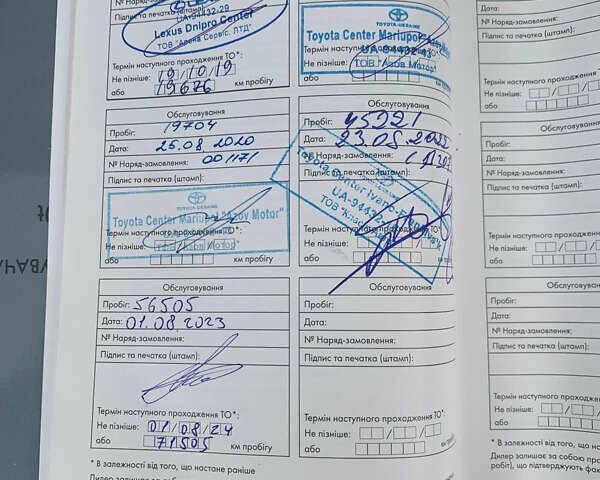 Підпис та печатка (штамп):
UA-94432-29
Lexus Dnipro Center
ТОВ "Арена Сервіс, ЛТД"
Термін наступного проходження ТО*:
Не пізніше: 19/10/19
або 19676 км пробігу
TOYOTA-UKRAINE
Toyota Center Mariupol
UA-94432-43
ТОВ "Азов Мотор"
Термін наступного проходження ТО*:
Не пізніше:
або км пробігу
Обслуговування
Пробіг: 19704
Дата: 25.08.2020
№ Наряд-замовлення: 001171
Підпис та печатка (штамп):
TOYOTA-UKRAINE
Toyota Center Mariupol "Azov Motor"
Термін наступного проходження ТО*:
Не пізніше:
ТОВ "Азов Мотор"
або км пробігу
Обслуговування
Пробіг: 45321
Дата: 23.05.
№ Наряд-замовлення:
Підпис та печатка (штамп):
Toyota Center Ivano-Frankivsk
Термін наступного проходження ТО*:
Не пізніше:
або км пробігу
Обслуговування
Пробіг: 56505
Дата: 01.08.2023
№ Наряд-замовлення:
Підпис та печатка (штамп):
Термін наступного проходження ТО*:
Не пізніше: 01/08/24
або 71505 км пробігу
Обслуговування
Пробіг:
Дата:
№ Наряд-замовлення:
Підпис та печатка (штамп):
Термін наступного проходження ТО*:
Не пізніше:
або км пробігу
* В залежності від того, що настане раніше
Дата:
№ Наряд-замовлення:
Підпис та печатка (штамп):
Термін наступного проходження
Не пізніше:
або
Обслуговування
Пробіг:
Дата:
№ Наряд-замовлення:
Підпис та печатка (штамп):
Термін наступного проходження
Не пізніше:
або
Обслуговування
Пробіг:
Дата:
№ Наряд-замовлення:
Підпис та печатка (штамп):
Термін наступного проходження
Не пізніше:
або
* В залежності від того, що
Дилер залишає за собою
робіт), що підтверджують